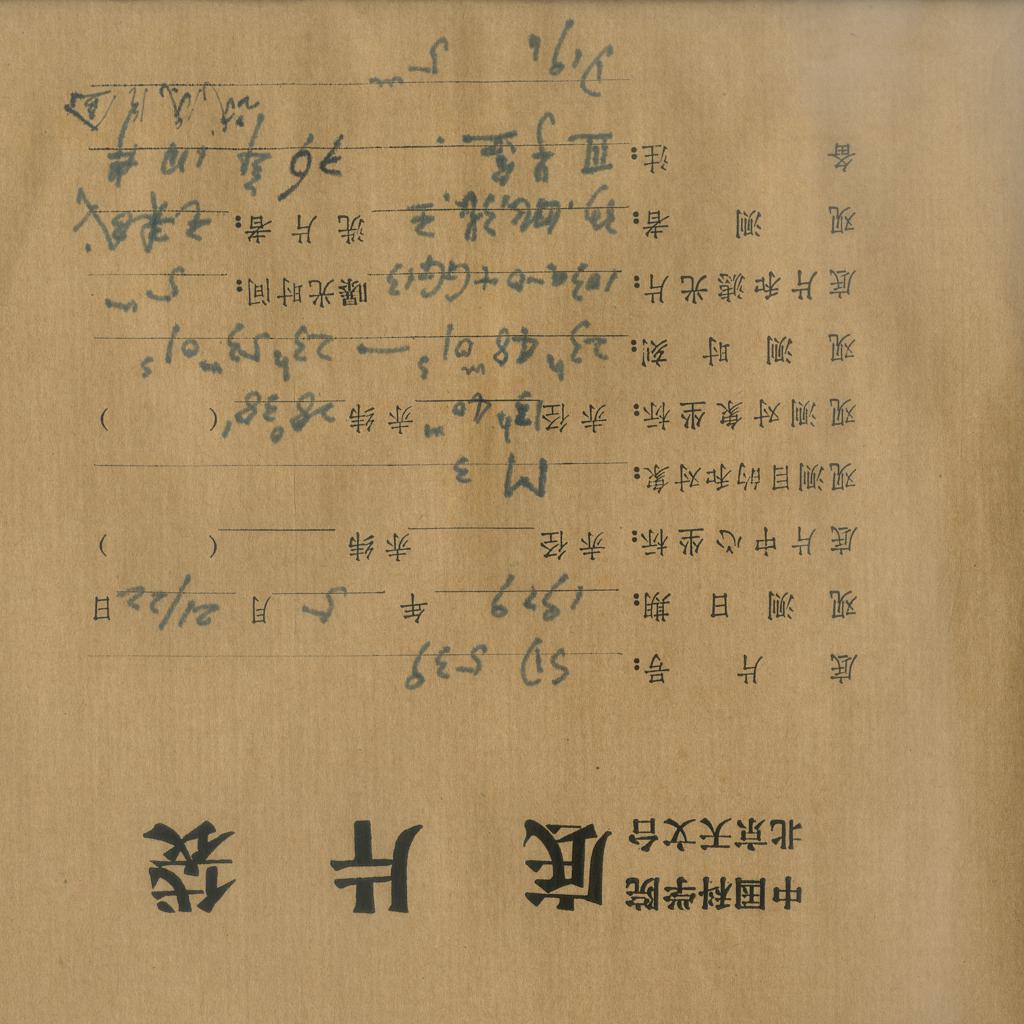 中国科学院
北京天文台
底片袋
底片号: SD 539
观测日期: 1979 年 5 月 21/22 日
底片中心坐标: 赤径 赤纬 ( )
观测目的和对象: M3
观测对象坐标: 赤径 13h40m 赤纬 28°38′ ( )
观测时刻: 23h48m01s — 23h53m01s
底片和滤光片: 103a-O+GG13 曝光时间: 5m
观测者: 洗片者:
备注: 76
5m